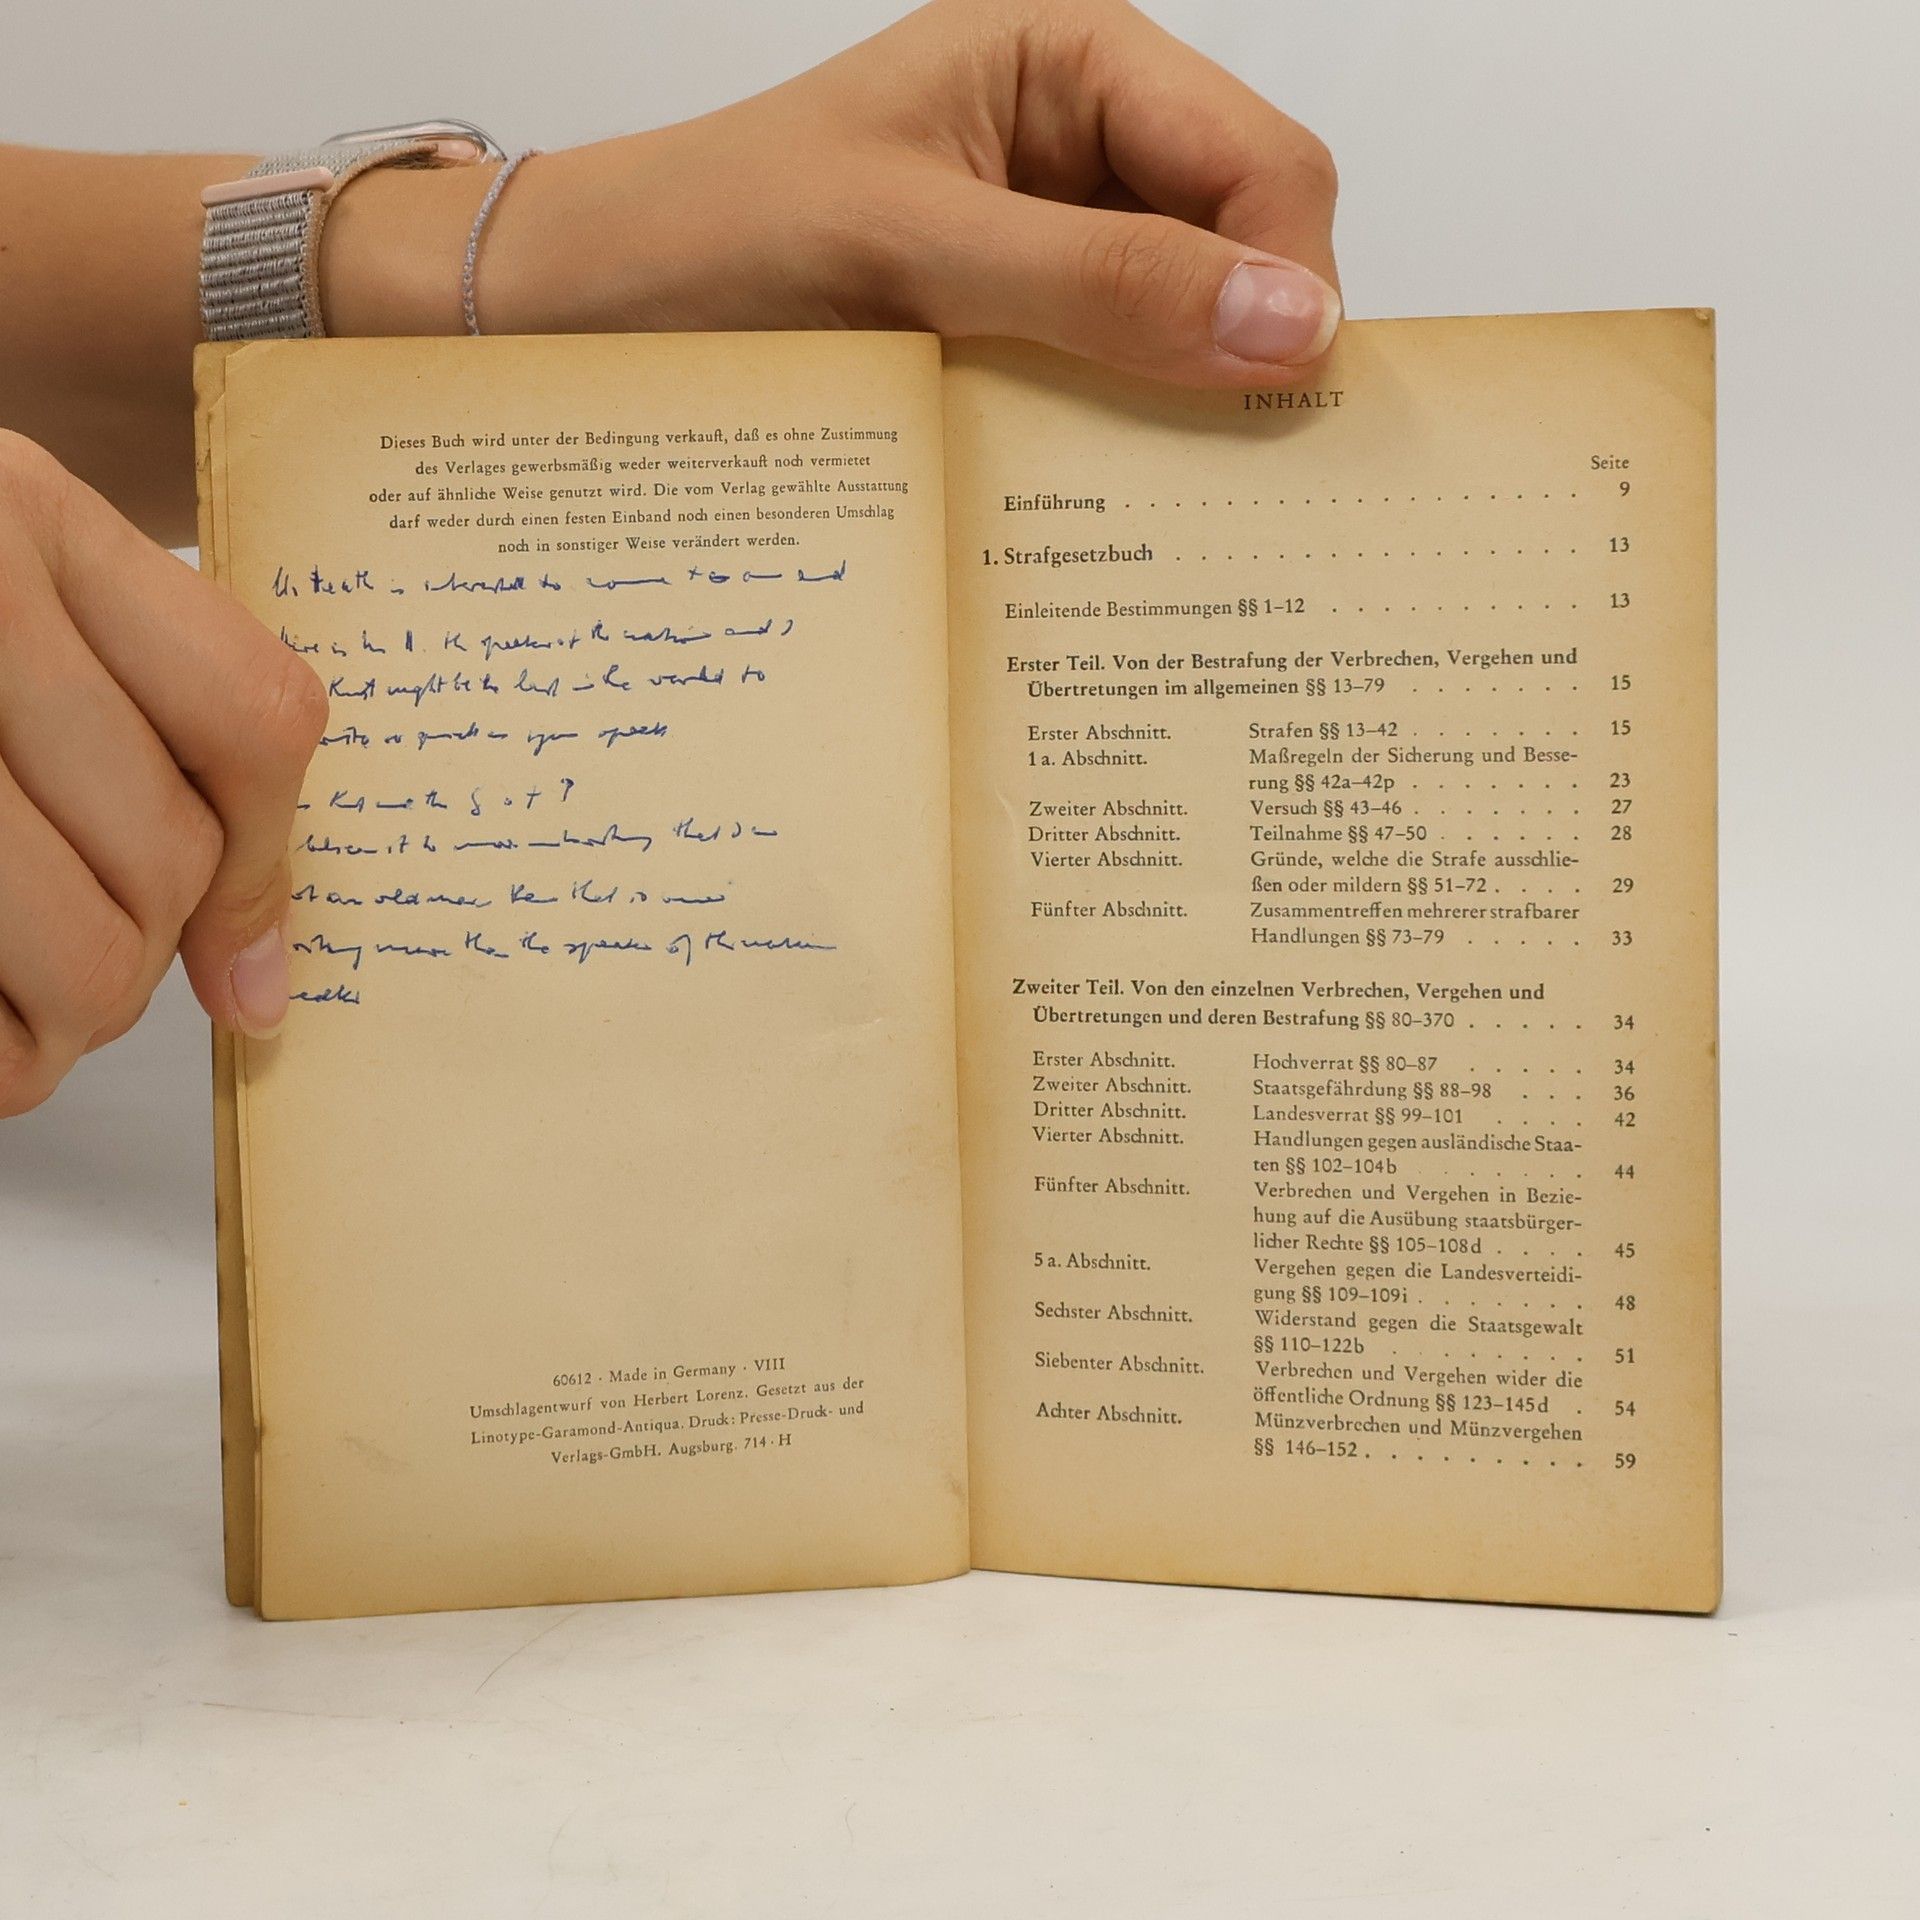 Dieses Buch wird unter der Bedingung verkauft, daß es ohne Zustimmung
des Verlages gewerbsmäßig weder weiterverkauft noch vermietet
oder auf ähnliche Weise genutzt wird. Die vom Verlag gewählte Ausstattung
darf weder durch einen festen Einband noch einen besonderen Umschlag
noch in sonstiger Weise verändert werden.
is to and
is the
might be the in the to
as
the
it to
old that is
more the of the
60612 · Made in Germany · VIII
Umschlagentwurf von Herbert Lorenz. Gesetzt aus der
Linotype-Garamond-Antiqua. Druck: Presse-Druck- und
Verlags-GmbH. Augsburg. 714 · H
INHALT
Seite
Einführung . . . . . . . . . . . . . . . . . . 9
1. Strafgesetzbuch . . . . . . . . . . . . . . . . 13
Einleitende Bestimmungen §§ 1–12 . . . . . . . . . . 13
Erster Teil. Von der Bestrafung der Verbrechen, Vergehen und
Übertretungen im allgemeinen §§ 13–79 . . . . . . . 15
Erster Abschnitt. Strafen §§ 13–42 . . . . . . . 15
1 a. Abschnitt. Maßregeln der Sicherung und Besse-
rung §§ 42a–42p . . . . . . . 23
Zweiter Abschnitt. Versuch §§ 43–46 . . . . . . . 27
Dritter Abschnitt. Teilnahme §§ 47–50 . . . . . . 28
Vierter Abschnitt. Gründe, welche die Strafe ausschlie-
ßen oder mildern §§ 51–72 . . . . 29
Fünfter Abschnitt. Zusammentreffen mehrerer strafbarer
Handlungen §§ 73–79 . . . . . 33
Zweiter Teil. Von den einzelnen Verbrechen, Vergehen und
Übertretungen und deren Bestrafung §§ 80–370 . . . . . 34
Erster Abschnitt. Hochverrat §§ 80–87 . . . . . 34
Zweiter Abschnitt. Staatsgefährdung §§ 88–98 . . . 36
Dritter Abschnitt. Landesverrat §§ 99–101 . . . . 42
Vierter Abschnitt. Handlungen gegen ausländische Staa-
ten §§ 102–104b . . . . . . 44
Fünfter Abschnitt. Verbrechen und Vergehen in Bezie-
hung auf die Ausübung staatsbürger-
licher Rechte §§ 105–108d . . . . 45
5 a. Abschnitt. Vergehen gegen die Landesverteidi-
gung §§ 109–109i . . . . . . . 48
Sechster Abschnitt. Widerstand gegen die Staatsgewalt
§§ 110–122b . . . . . . . . 51
Siebenter Abschnitt. Verbrechen und Vergehen wider die
öffentliche Ordnung §§ 123–145d . 54
Achter Abschnitt. Münzverbrechen und Münzvergehen
§§ 146–152 . . . . . . . . . 59